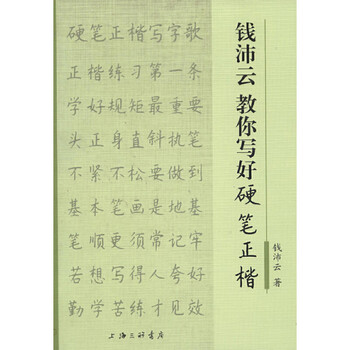 钱沛云 教你写好硬笔正楷
钱沛云 著
硬笔正楷写字歌
正楷练习第一条
学好规矩最重要
头正身直斜执笔
不紧不松要做到
基本笔画是地基
笔顺更须常记牢
若想写得人夸好
勤学苦练才见效
上海三联书店